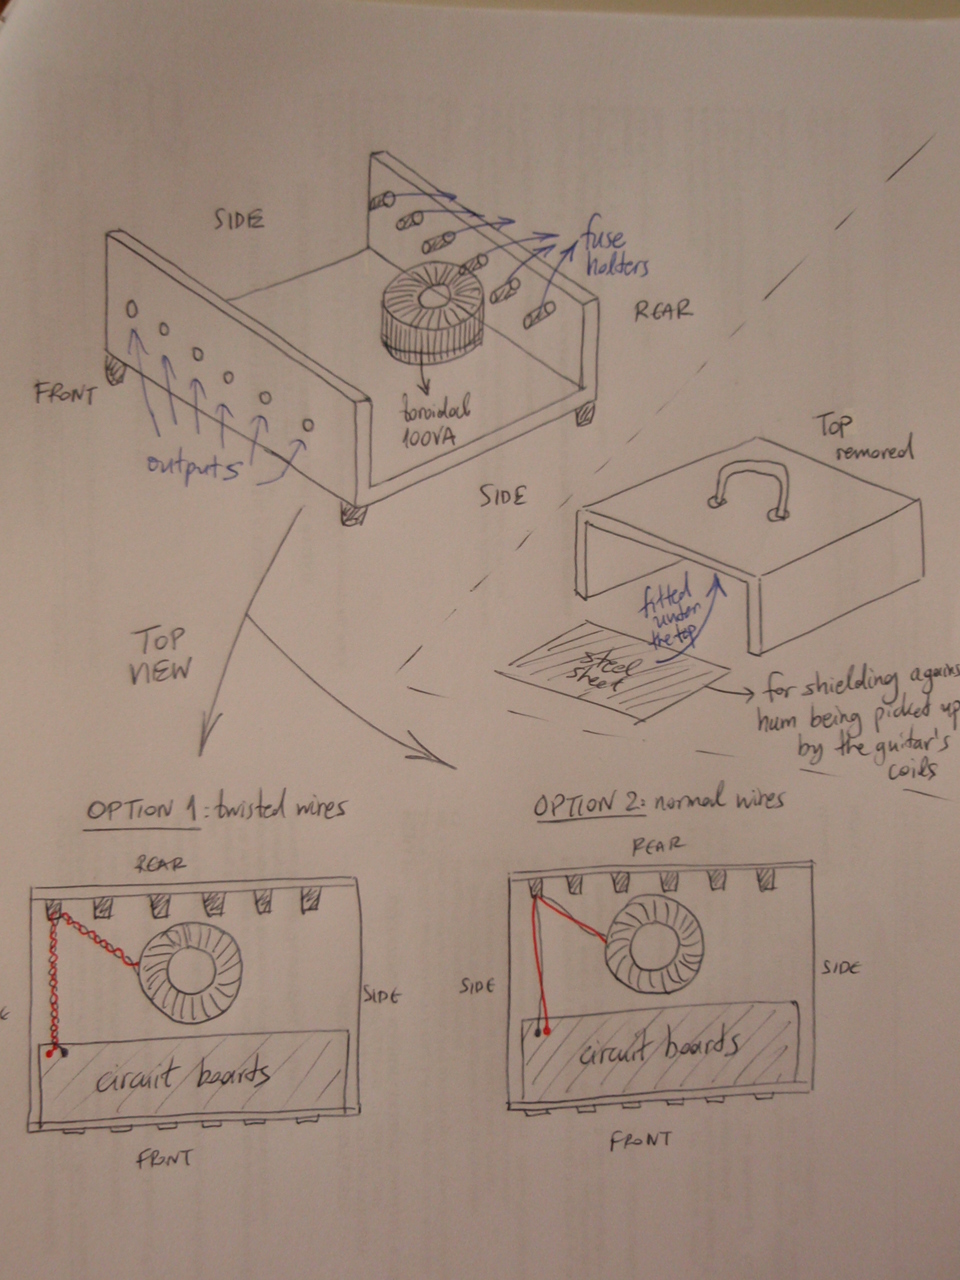 SIDE
fuse
holters
REAR
FRONT
toroidal
100VA
outputs
SIDE
TOP
removed
fitted
under
the top
steel
sheet
for shielding agains
hum being picked up
by the guitar's
coils
TOP
NEW
OPTION 1: twisted wires
REAR
SIDE
circuit boards
FRONT
OPTION 2: normal wires
REAR
SIDE
SIDE
circuit boards
FRONT